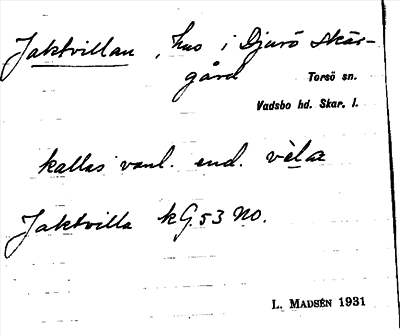 Jaktvillan, hus i Djurö skär-
gård Torsö sn.
Vadsbo hd. Skar. l.
kallas vanl. end. vèla
Jaktvilla kG. 53 NO.
L. MADSÉN 1931